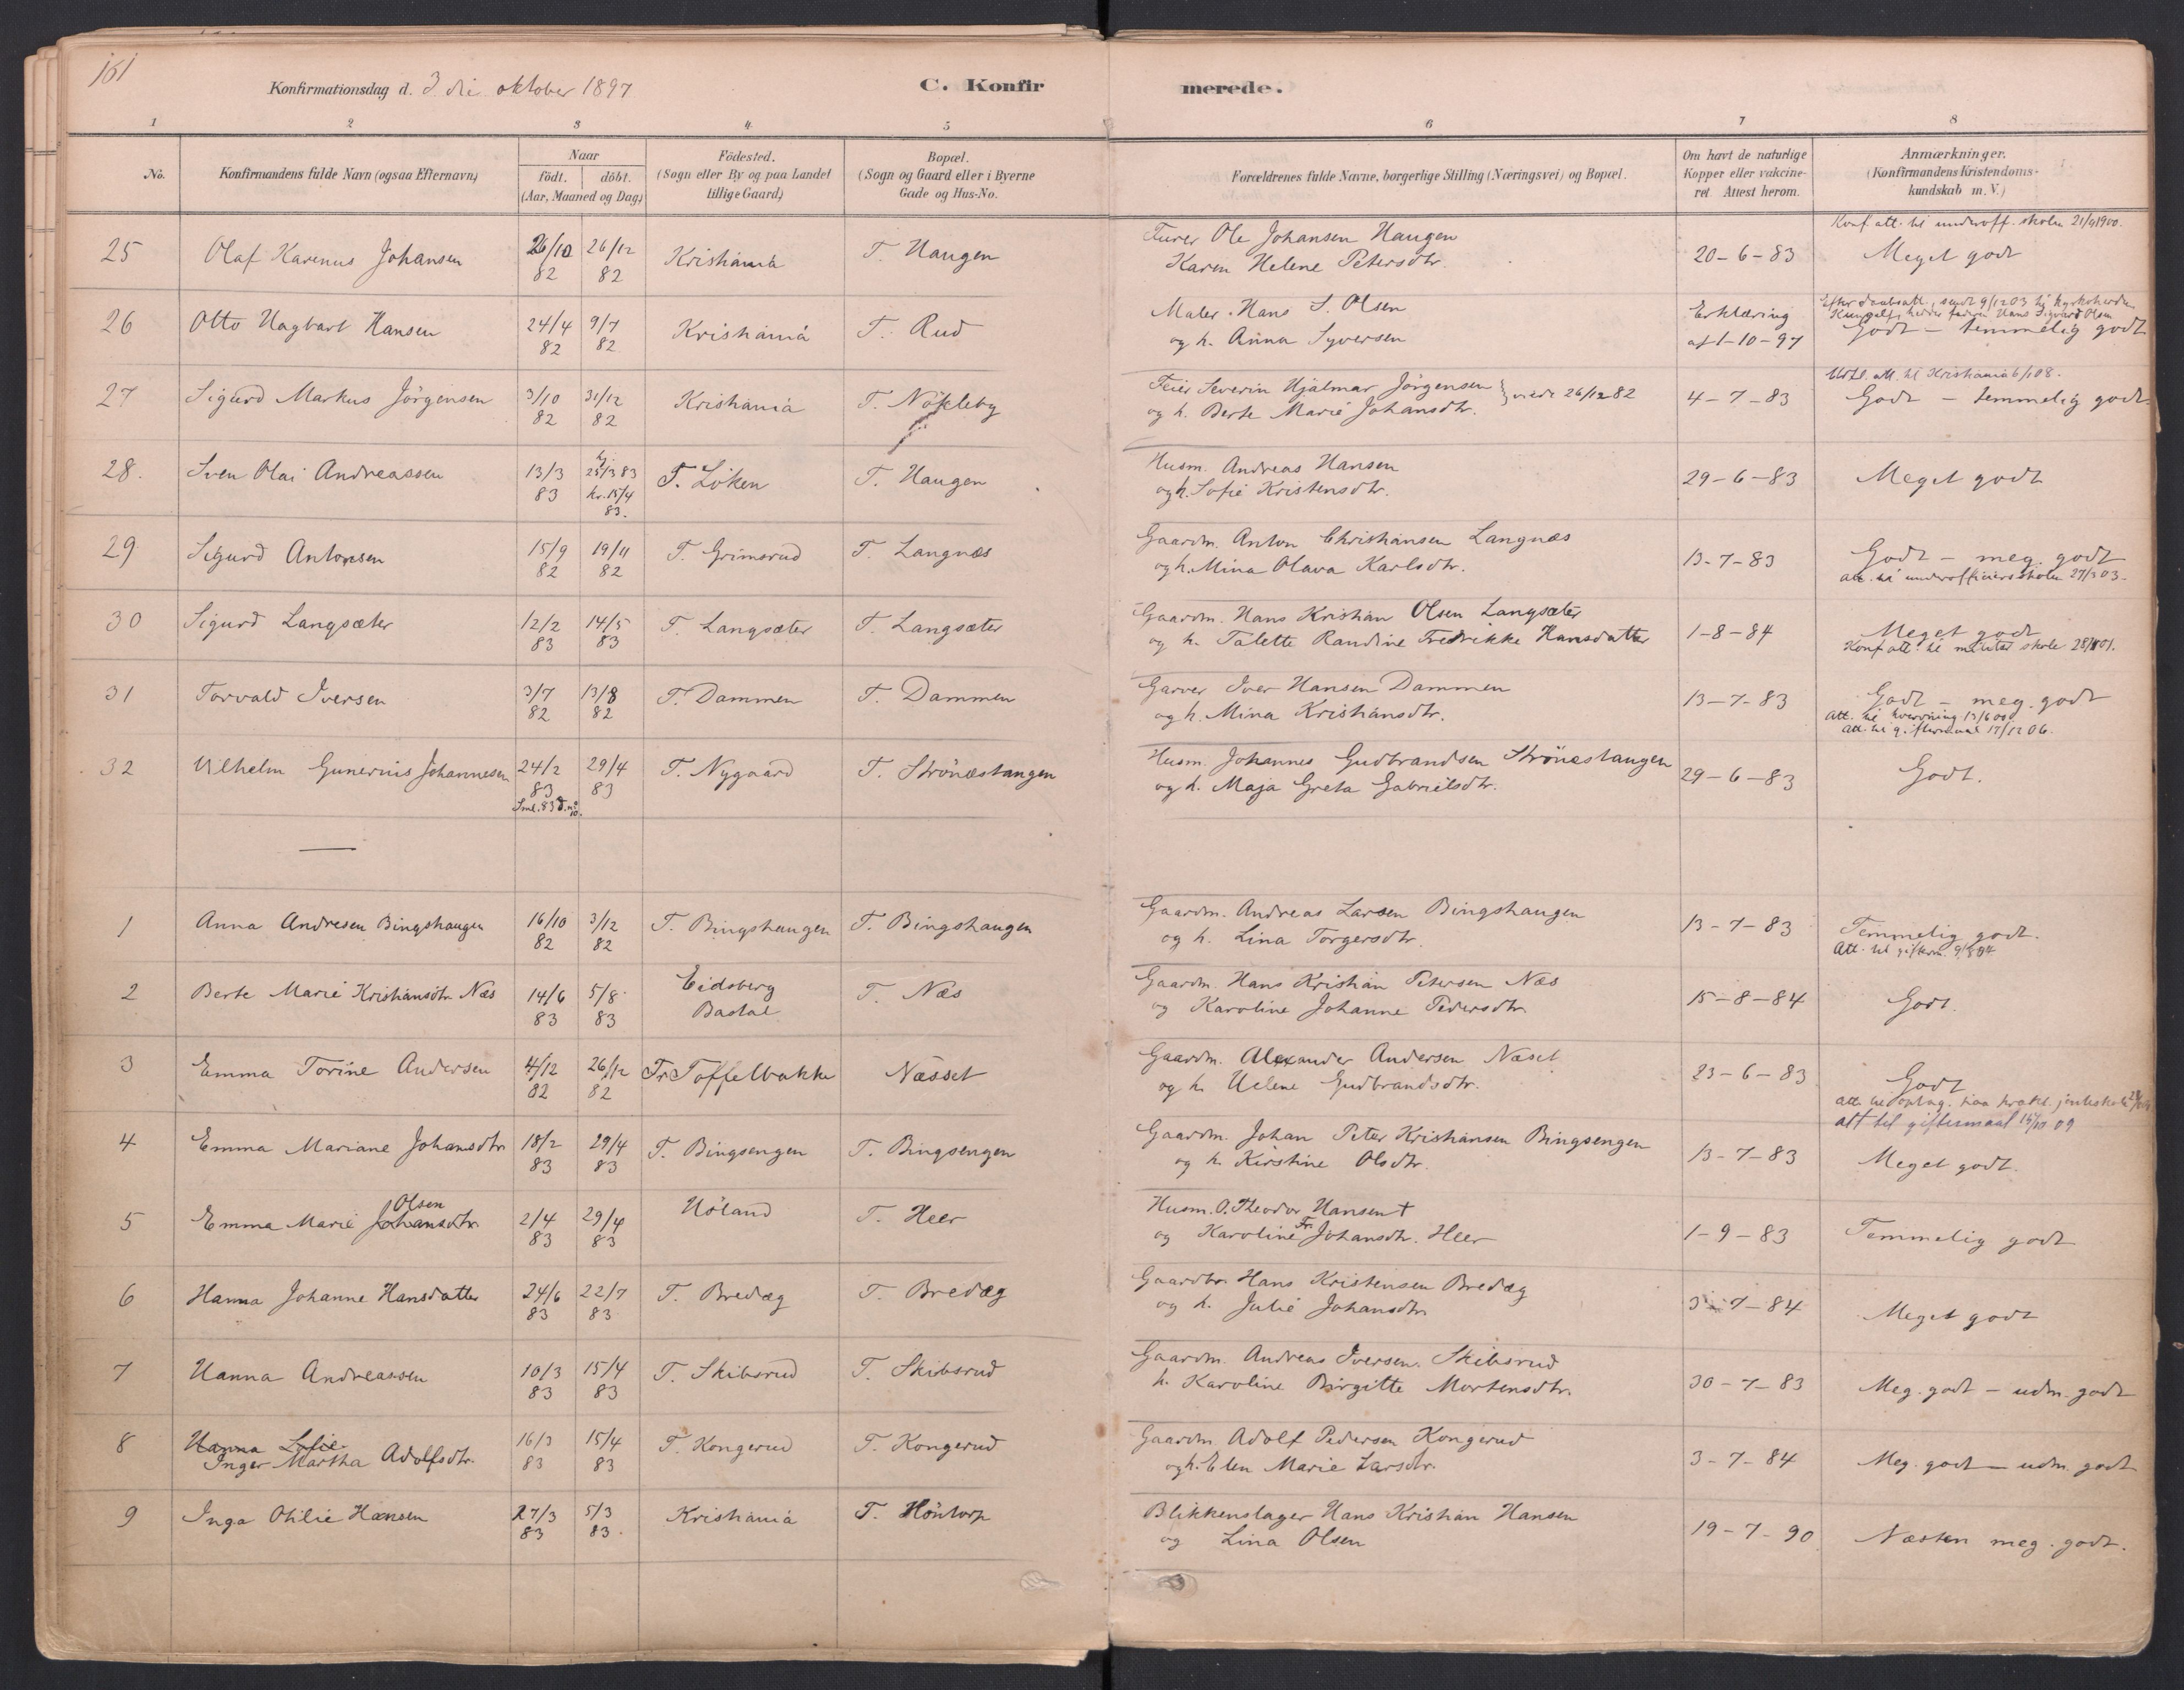 161
Konfirmationsdag d. 3 die oktober 1897
C. Konfirmerede.
1 2 3 4 5 6 7 8
No.
Konfirmandens fulde Navn (ogsaa Efternavn)
Naar
födt. döbt.
(Aar, Maaned og Dag)
Födested.
(Sogn eller By og paa Landet
tillige Gaard)
Bopæl.
(Sogn og Gaard eller i Byerne
Gade og Hus-No.
Forældrenes fulde Navne, borgerlige Stilling (Næringsvei) og Bopæl.
Om havt de naturlige
Kopper eller vakcine-
ret. Attest herom.
Anmærkninger.
(Konfirmandens Kristendoms-
kundskab m. V.)
Konf. att. til underoff. skolen 21/4 1900.
25 Olaf Karenus Johansen 26/10 82 26/12 82 Kristiania T. Haugen
Furer Ole Johansen Haugen
Karen Helene Petersdtr.
20-6-83 Meget godt
26 Otto Hagbart Hansen 24/4 82 9/7 82 Kristiania T. Rud
Maler Hans S. Olsen
og h. Anna Syversen
Erklæring
af 1-10-97
Efter daabsatt., sendt 9/12 03 til Kyrkoherden
Kungelf, hedder faderen Hans Sigvard Olsen
Godt - temmelig godt
27 Sigurd Markus Jörgensen 3/10 82 31/12 82 Kristiania T. Nökleby
Feier Severin Hjalmar Jörgensen
og h. Berte Marie Johansdtr. } viede 26/12 82
4-7-83
att. til Kristiania 6/1 08.
Godt - temmelig godt.
28. Sven Olai Andreassen 13/3 83 hj. 25/3 83 kr. 15/4 83. T. Löken T. Haugen
Husm. Andreas Hansen
og h. Sofie Kristensdtr.
29-6-83 Meget godt
29 Sigurd Antonsen 15/9 82 19/11 82 T. Grimsrud T. Langnæs
Gaardm. Anton Christiansen Langnæs
og h. Mina Olava Karlsdtr.
13-7-83 Godt - meg. godt
att. til underofficiersskolen 27/3 03.
30 Sigurd Langsæter 12/2 83 14/5 83 T. Langsæter T. Langsæter
Gaardm. Hans Kristian Olsen Langsæter
og h. Talette Randine Fredrikke Hansdatter
1-8-84 Meget godt
Konf. att. til skole
31 Torvald Iversen 3/7 82 13/8 82 T. Dammen T. Dammen
Garver Iver Hansen Dammen
og h. Mina Kristiansdtr.
13-7-83 Godt - meg. godt
Att. til hverving 13/6 00
Att. til giftermaal 17/12 06.
32 Vilhelm Gunerius Johannesen 24/2 83 29/4 83 T. Nygaard T. Strönæstangen
Husm. Johannes Gudbrandsen Strönæstangen
og h. Maja Greta Gabrielsdtr.
29-6-83 Godt.
1 Anna Andresen Bingshaugen 16/10 82 3/12 82 T. Bingshaugen T. Bingshaugen
Gaardm. Andreas Larsen Bingshaugen
og h. Lina Torgersdtr.
13-7-83 Temmelig godt.
Att. til gifterm.
2 Berte Marie Kristiansdtr. Næs 14/6 83 5/8 83 Eidsberg
Bastal T. Næs
Gaardm. Hans Kristian Petersen Næs
og Karoline Johanne Pedersdtr.
15-8-84 Godt.
3 Emma Torine Andersen 4/12 82 26/12 82 Tr. Toffelbakke Næsset
Gaardm. Alexander Andersen Næset
og h. Helene Gudbrandsdtr.
23-6-83 Godt
att til giftermaal 14/10 09
4 Emma Mariane Johansdtr. 18/2 83 29/4 83 T. Bingsengen T. Bingsengen
Gaardm. Johan Peter Kristiansen Bingsengen
og h. Kirstine Olsdtr.
13-7-83 Meget godt.
5 Emma Marie Johansdtr. Olsen 2/4 83 29/4 83 Höland T. Heer
Husm. O. Theodor Hansen +
og Karoline Fr. Johansdtr. Heer
1-9-83 Temmelig godt
6 Hanna Johanne Hansdatter 24/6 83 22/7 83 T. Bredæg T. Bredæg
Gaardbr. Hans Kristensen Bredæg
og h. Julie Johansdtr.
3-7-84 Meget godt
7 Hanna Andreassen 10/3 83 15/4 83 T. Skibsrud T. Skibsrud
Gaardm. Andreas Iversen Skibsrud
h. Karoline Birgitte Mortensdtr.
30-7-83 Meg. godt - udm. godt
8 Hanna Sofie
Inger Martha Adolfsdtr. 16/3 83 15/4 83 T. Kongerud T. Kongerud
Gaardm. Adolf Pedersen Kongerud
og h. Elen Marie Larsdtr.
3-7-84 Meg. godt - udm. godt
9 Inga Otilie Hansen 27/3 83 5/3 83 Kristiania T. Höntorp
Blikkenslager Hans Kristian Hansen
og Lina Olsen
19-7-90 Næsten meg. godt.